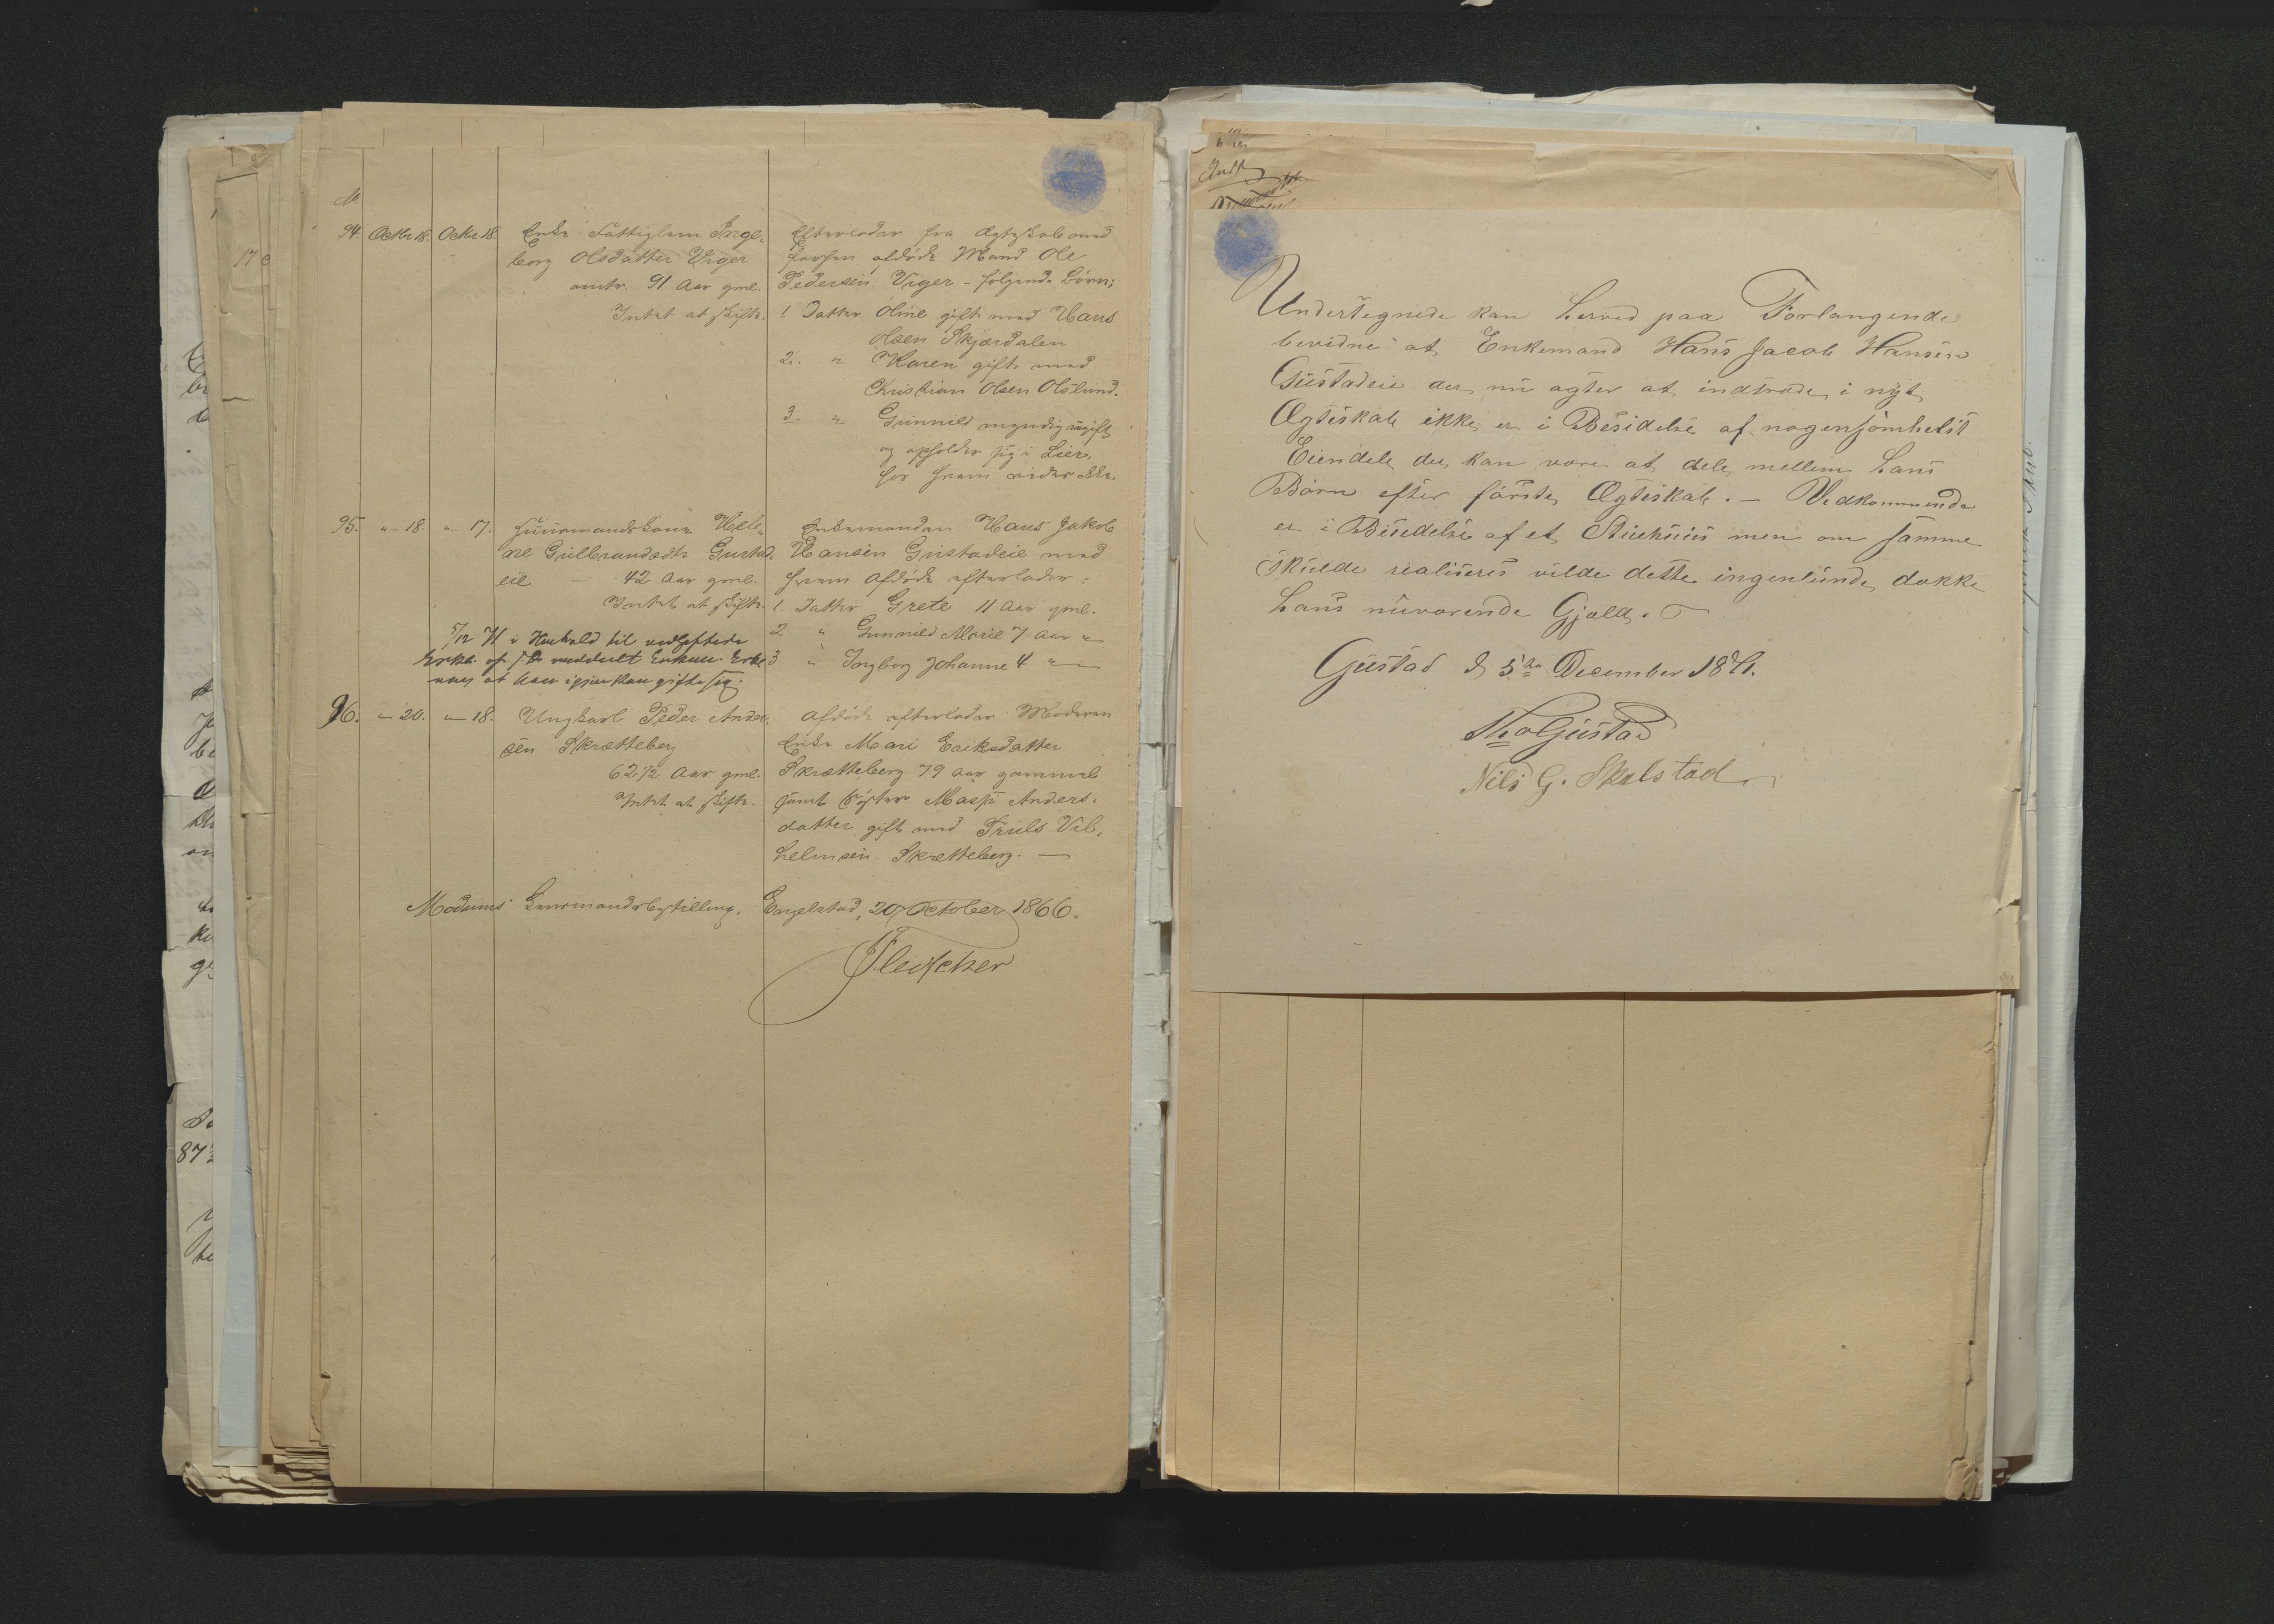 No.
94. Octbr 18. Octbr 18. Enke Fattiglem Inge-
borg Olsdatter Viger
omtr. 91 Aar gml.
Intet at skifte.
Efterlader fra Ægteskab med
forhen afdøde Mand Ole
Pedersen Viger - følgende Børn;
1. Datter Oline gift med Hans
Olsen Skjærdalen
2. " Karen gift med
Christian Olsen Oslund.
3. " Gunnild myndig ugift
og opholder sig i Lier,
hos hvem vides ikke.
95. " 18. " 17. Huusmandskone Hele-
ne Gulbrandsdtr Gustad-
eie - 42 Aar gml.
Intet at skifte.
5/12 71 i Henhold til vedheftede
Erkl. af s. D. meddeelt Enkem. Erkl
om at han igjen kan gifte sig.
Enkemanden Hans Jakob
Hansen Gustadeie med
hvem Afdøde efterlader:
1. Datter Grete 11 Aar gml.
2 " Gunnild Marie 7 Aar "
3 " Ingborg Johanne 4 "
96. " 20. " 18. Ungkarl Peder Ander-
sen Skrætteberg
62 1/2 Aar gml.
Intet at skifte.
Afdøde efterlader Moderen
Enke Mari Eriksdatter
Skrætteberg 79 Aar gammel
samt Søster Masji Anders-
datter gift med Truls Vil-
helmsen Skrætteberg. —
Modums Lensmandsbestilling, Engelstad, 20 October 1866.
Fleischer
17
87
Undertegnede kan herved paa Forlangende
bevidne at Enkemand Hans Jacob Hansen
Gustadeie der nu agter at indtræde i nyt
Ægteskab ikke er i Besidelse af nogensomhelst
Eiendele der kan være at dele mellem hans
Børn efter første Ægteskab. — Vedkommende
er i Besidelse af et Stuehuus men om samme
skulde realiseres vilde dette ingenlunde dække
hans nuværende Gjæld.
Gustad d 5te December 1871.
Th o Gustad
Nils G. Skalstad